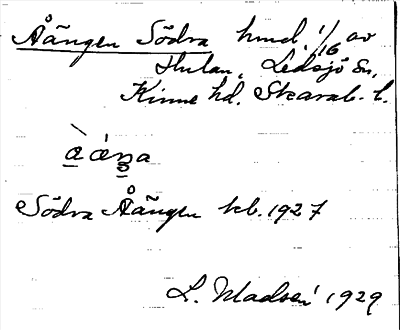 Åängen Södra hmd. 1/16 av
Hulan, Ledsjö Sn,
Kinne hd. Skarab. l.
Södra Åängen kb. 1927
L. Madsén 1929